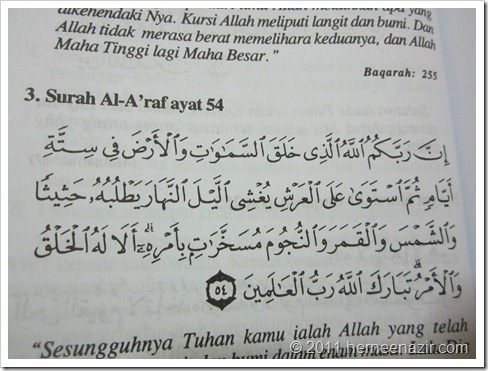 dikehendaki Nya. Kursi Allah meliputi langit dan bumi. Dan
Allah tidak merasa berat memelihara keduanya, dan Allah
Maha Tinggi lagi Maha Besar.”
Baqarah: 255
3. Surah Al-A’raf ayat 54
إِنَّ رَبَّكُمُ اللَّهُ الَّذِى خَلَقَ السَّمَٰوَٰتِ وَالْأَرْضَ فِى سِتَّةِ
أَيَّامٍ ثُمَّ اسْتَوَىٰ عَلَى الْعَرْشِ يُغْشِى الَّيْلَ النَّهَارَ يَطْلُبُهُۥ حَثِيثًا
وَالشَّمْسَ وَالْقَمَرَ وَالنُّجُومَ مُسَخَّرَٰتٍۭ بِأَمْرِهِۦٓ ۗ أَلَا لَهُ الْخَلْقُ
وَالْأَمْرُ ۗ تَبَارَكَ اللَّهُ رَبُّ الْعَالَمِينَ ٥٤
“Sesungguhnya Tuhan kamu ialah Allah yang telah
bumi dalam enam masa
© 2011 hemeenazir.com